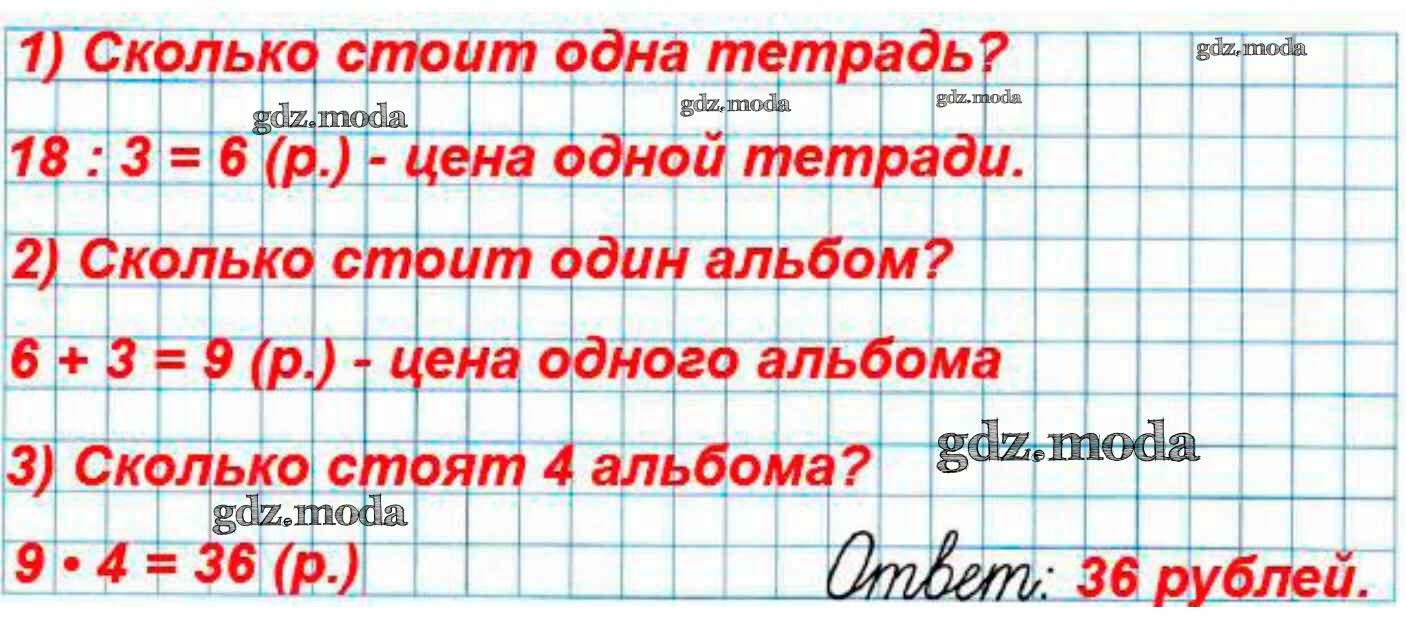 1) Сколько стоит одна тетрадь?
gdz.moda
gdz.moda
gdz.moda
gdz.moda
18 : 3 = 6 (р.) - цена одной тетради.
2) Сколько стоит один альбом?
6 + 3 = 9 (р.) - цена одного альбома
gdz.moda
3) Сколько стоят 4 альбома?
gdz.moda
9 • 4 = 36 (р.)
Ответ: 36 рублей.